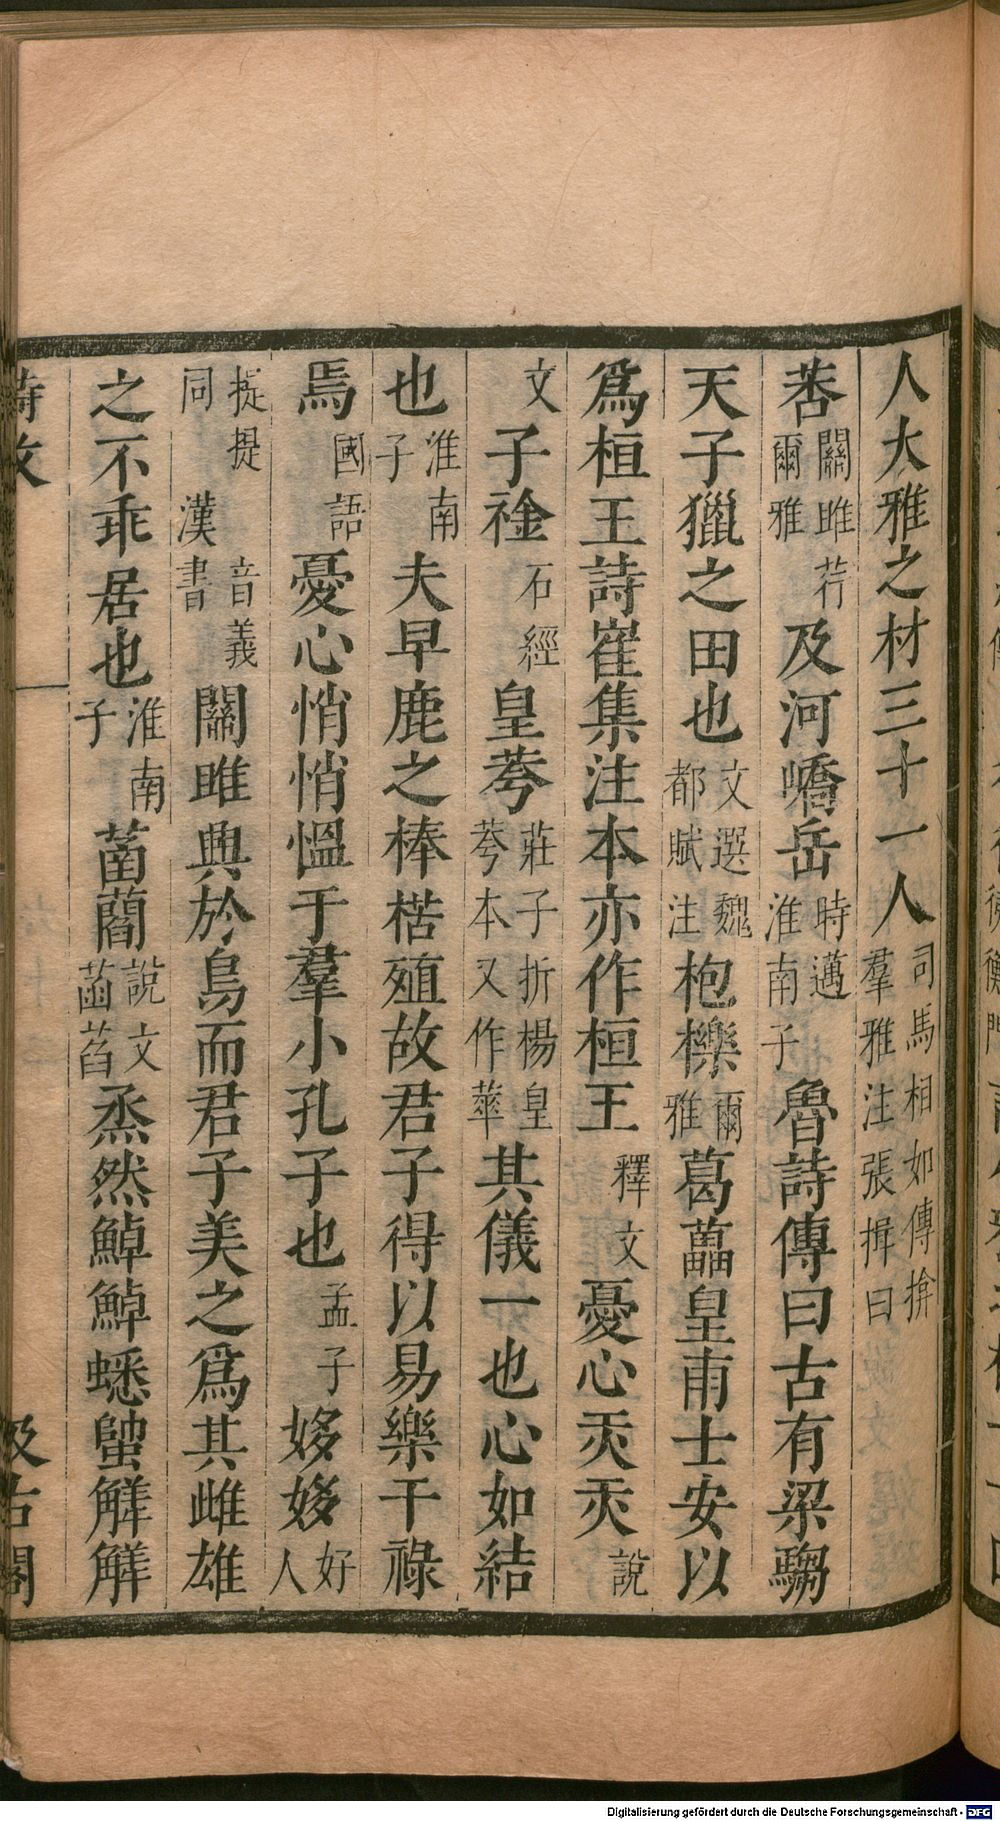 人大雅之材三十一人司馬相如傳揜羣雅注張揖曰
荅關雎爾雅荇及河嶠岳時邁淮南子魯詩傳曰古有梁騶
天子獵之田也文選魏都賦注枹櫟爾雅葛藟皇甫士安以
爲桓王詩崔集注本亦作桓王釋文憂心灻灻說
文子䘳石經皇荂莊子折楊皇荂本又作華其儀一也心如結
也淮南子夫旱鹿之榛楛殖故君子得以易樂干祿
焉國語憂心悄悄慍于羣小孔子也孟子姼姼好人
提媞同漢書音義關雎興於鳥而君子美之爲其雌雄
之不乖居也淮南子菡藺說文菡萏烝然鯙鯙蟋蟀解解
詩攷
汲古閣
Digitalisierung gefördert durch die Deutsche Forschungsgemeinschaft - DFG